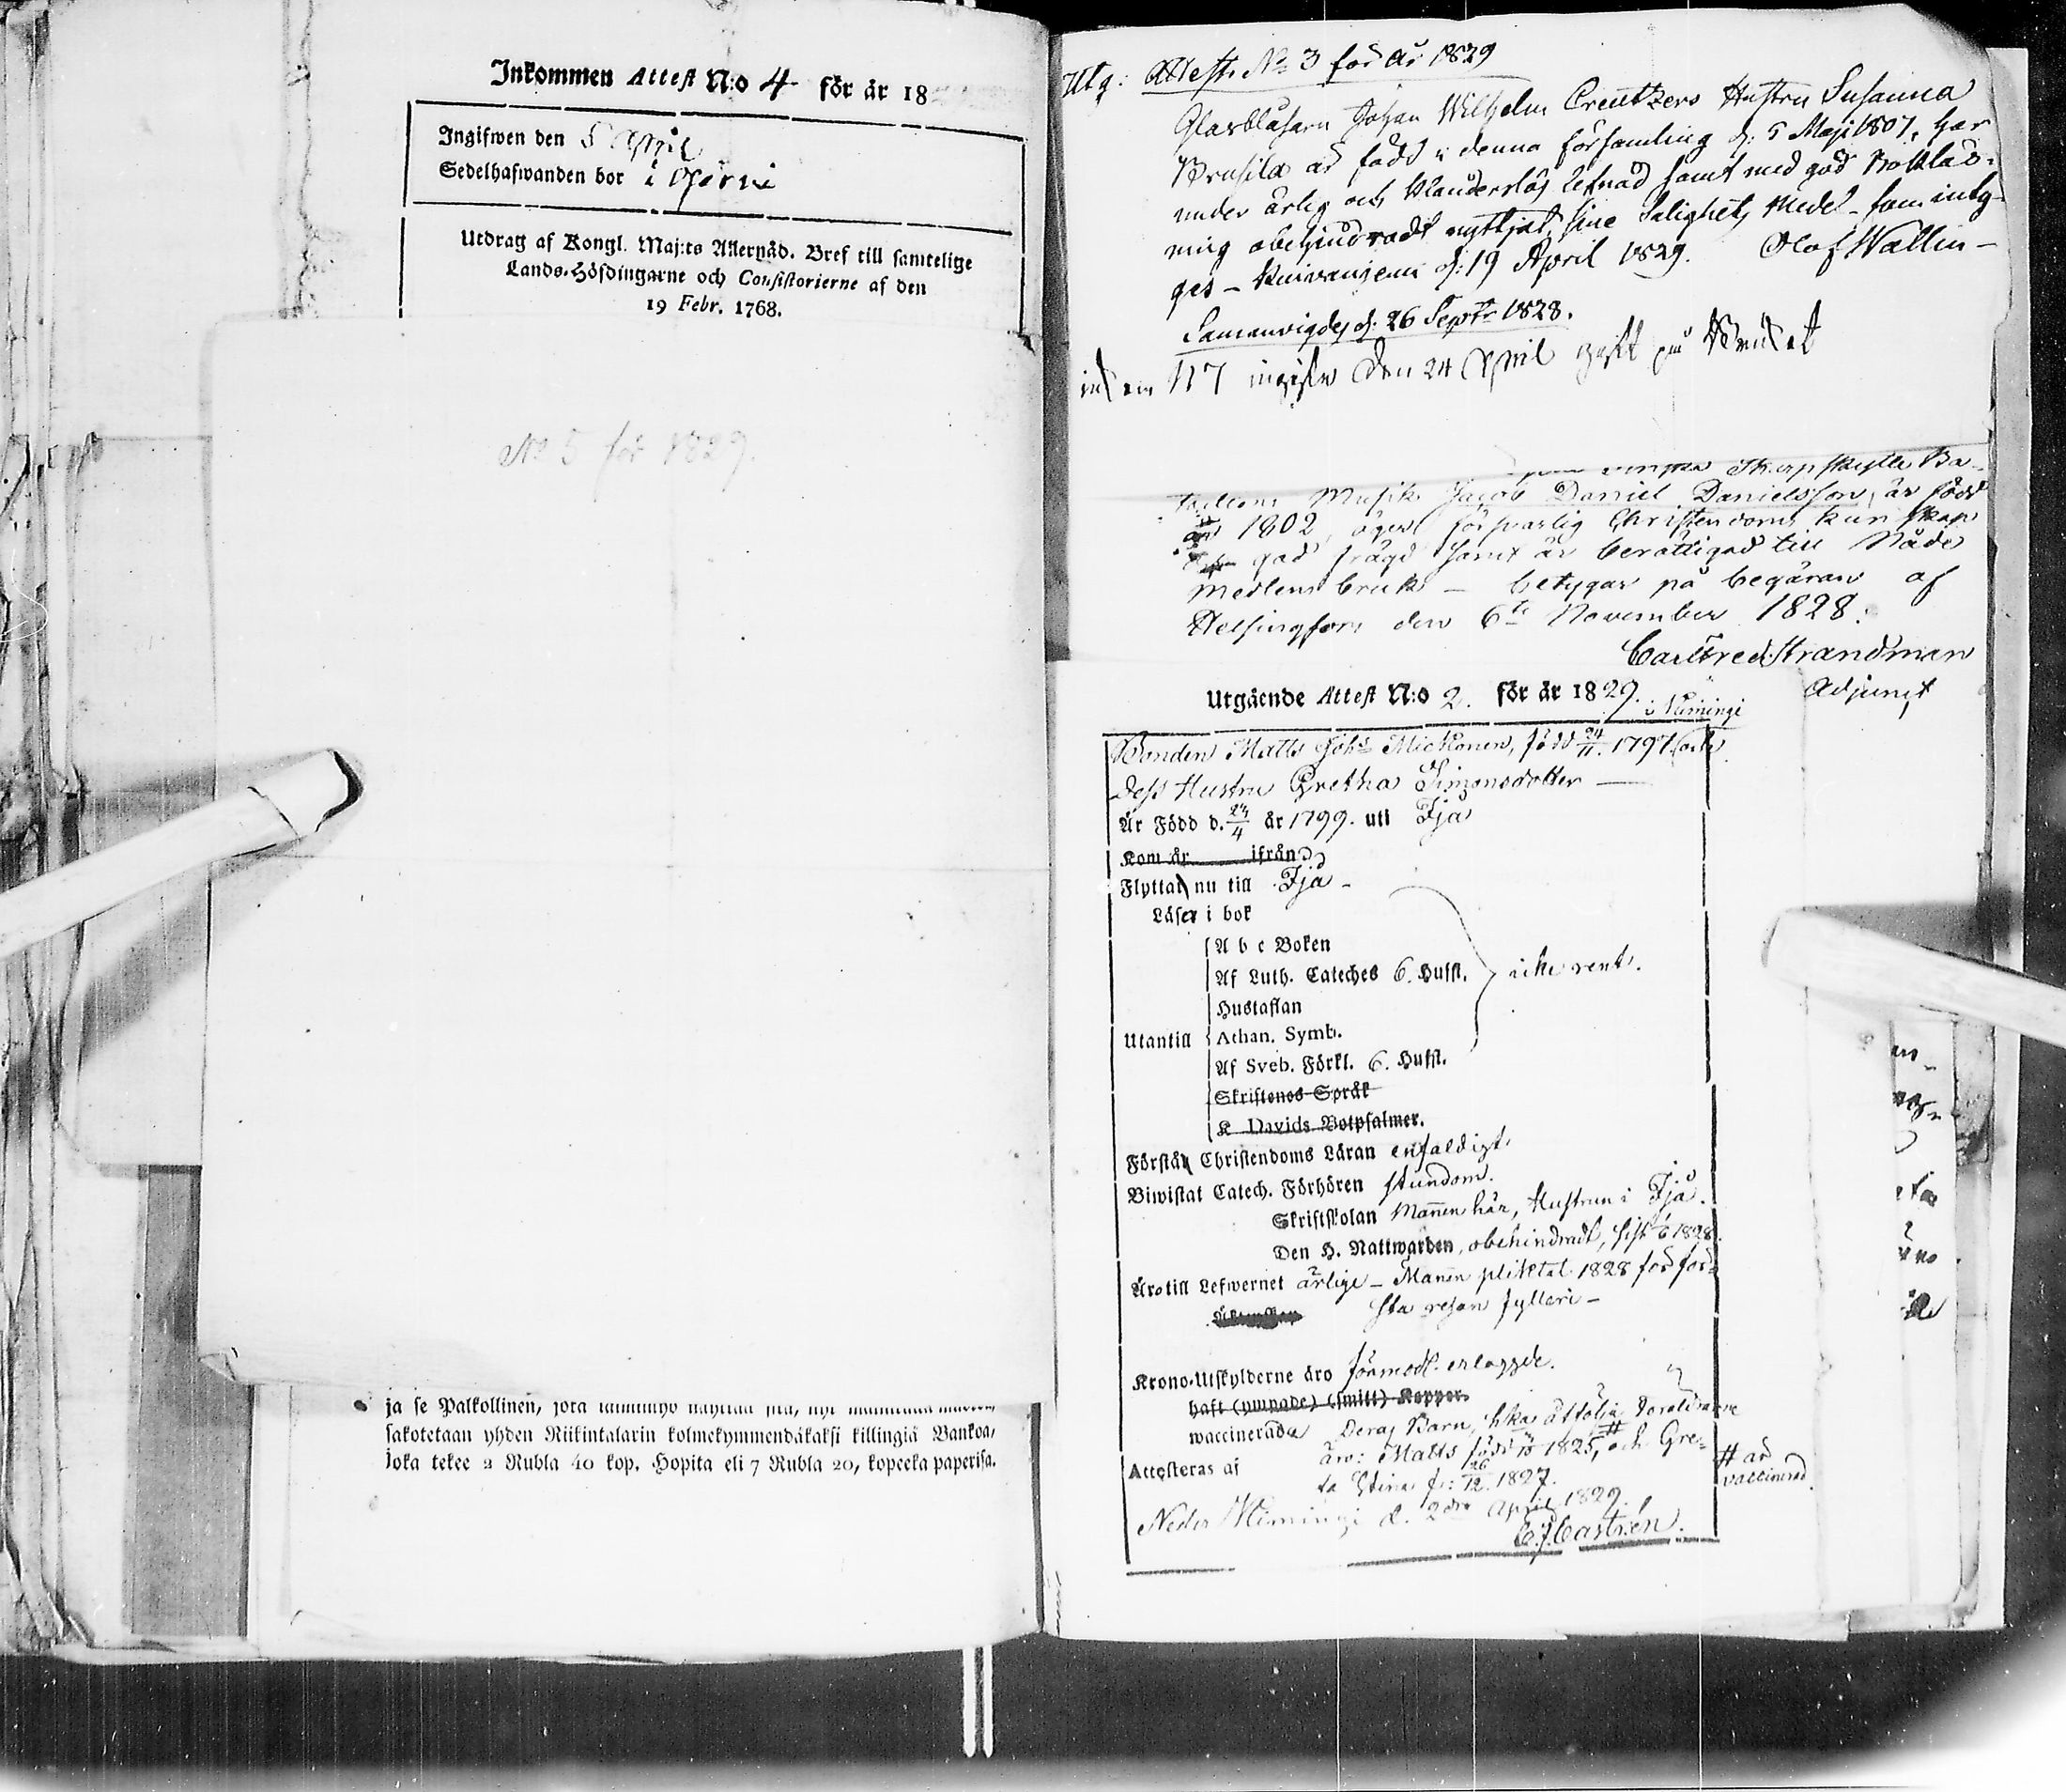 Inkommen Attest N:o 4 för år 18
Ingifwen den 5 April
Sedelhafwanden bor i
Utdrag af Kongl. Maj:ts Allernåd. Bref till samtelige
Lands-Höfdingarne och Consistorierne af den
19 Febr. 1768.
No 5 för 1829.
ja se Palkollinen, jota
sakotetaan yhden Riikintalarin kolmekymmendäkaksi killingiä Bankoa,
joka tekee 2 Rubla 40 kop. Hopita eli 7 Rubla 20, kopeeka paperisa.
Utg: Attest No 3 för år 1829
Glasblåsarn Johan Wilhelm Creutzers Hustru Susanna
Brusila är född i denna församling d: 5 Maji 1807, har
under ärlig och klanderslös lefnad samt med god Bokläs-
ning obehindradt nyttjat sine Salighets Medel - som intyg-
ges - Kuivaniemi d: 19 April 1829. Olof Wallin -
Sammanvigdes d: 26 Septr 1828.
N 7 ingifw den 24 April på Bruket
Skarpskytte Ba-
taillons Musik. Jacob Daniel Danielsson, är född
år 1802, äger försvarlig Christendoms kunskap
god frägd samt är berättigad till Nåde
medlens bruk - betygar på begäran af
Helsingfors den 6te November 1828.
Carl Fred. Strandman
Adjunct
Utgående Attest N:o 2. för år 1829.
i Kiminge
Bonden Matts Joh:s Mickonen, född 24/11. 1797. och
dess Hustru Gretha Simonsdotter
Är Född d. 24/4 år 1799. uti Ijå
Kom år ifrån
Flyttar nu till Ijå -
Läser i bok
A b c Boken
Af Luth. Cateches 6. Hufst. icke rent.
Hustaflan
Utantill Athan. Symb.
Af Sveb. Förkl. 6. Hufst.
Skriftenes Språk
K Davids Botpsalmer.
Förstår Christendoms Läran enfaldigt
Biwistat Catech. Förhören stundom.
Skriftskolan Mannen här, Hustrun i Ijå.
Den H. Nattwarden, obehindradt, sist 1/6 1828.
Äro till Lefwernet ärlige - Mannen pliktat 1828 för för-
sta resan fylleri -
Krono-Utskylderne äro förmodl. erlagde.
haft (ympade) (smitt) Koppor.
waccinerade Deras Barn, hka åtfölja Föräldrarne
äro: Matts född 1825, # och Gre-
Attesteras af ta Stina f: 26/12. 1827.
# är
vaccinerad.
Neder Kiminge d. 2dra April 1829.
C. J. Castrén.